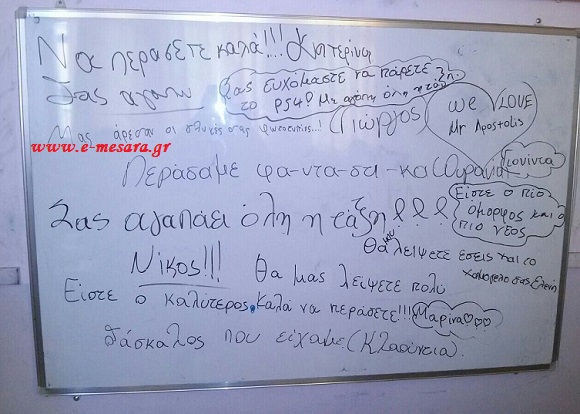 Να περάσετε καλά!!! Κατερίνα
Σας αγαπώ
Σας ευχόμαστε να πάρετε
το PS4! Με αγάπη όλη η τάξη.
Μας άρεσαν οι γλυκές σας φωτοτυπίες..!
Γιώργος
we LOVE
Mr Apostolis
www.e-mesara.gr
Γιονίντα
Περάσαμε φα-ντα-στι-κα (Ουρανία)
Σας αγαπάει όλη η τάξη!!!
Είστε ο πιο
όμορφος και ο
πιο νέος
Θα μου λείψετε εσείς και το
χαμόγελο σας Ελένη
Νίκος!!!
Θα μας λείψετε πολύ
Είστε ο καλύτερος
Καλά να περάσετε!!! Μαρίνα♡♡♡
δάσκαλος που είχαμε (Κλαούντια)